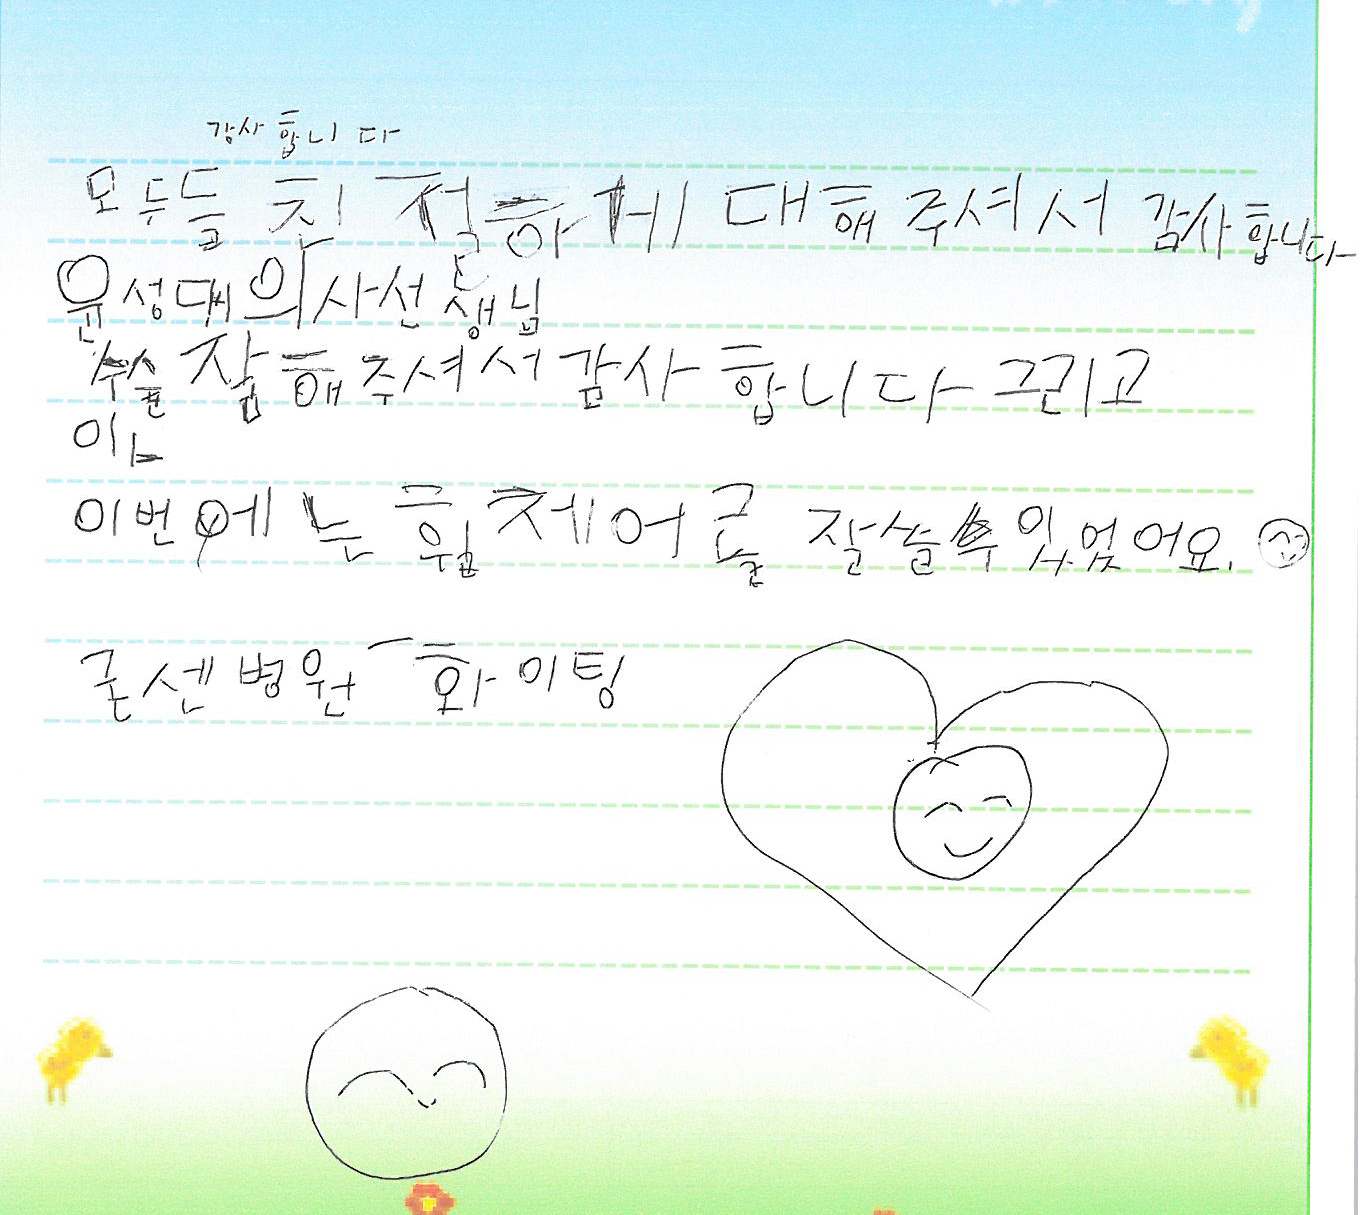 감사합니다
모두들 친절하게 대해 주셔서 감사합니다
윤성대 의사선생님
수술 잘 해주셔서 감사합니다 그리고
이
이번에는 휠체어를 잘 쓸 수 있었어요.
굳센병원 화이팅